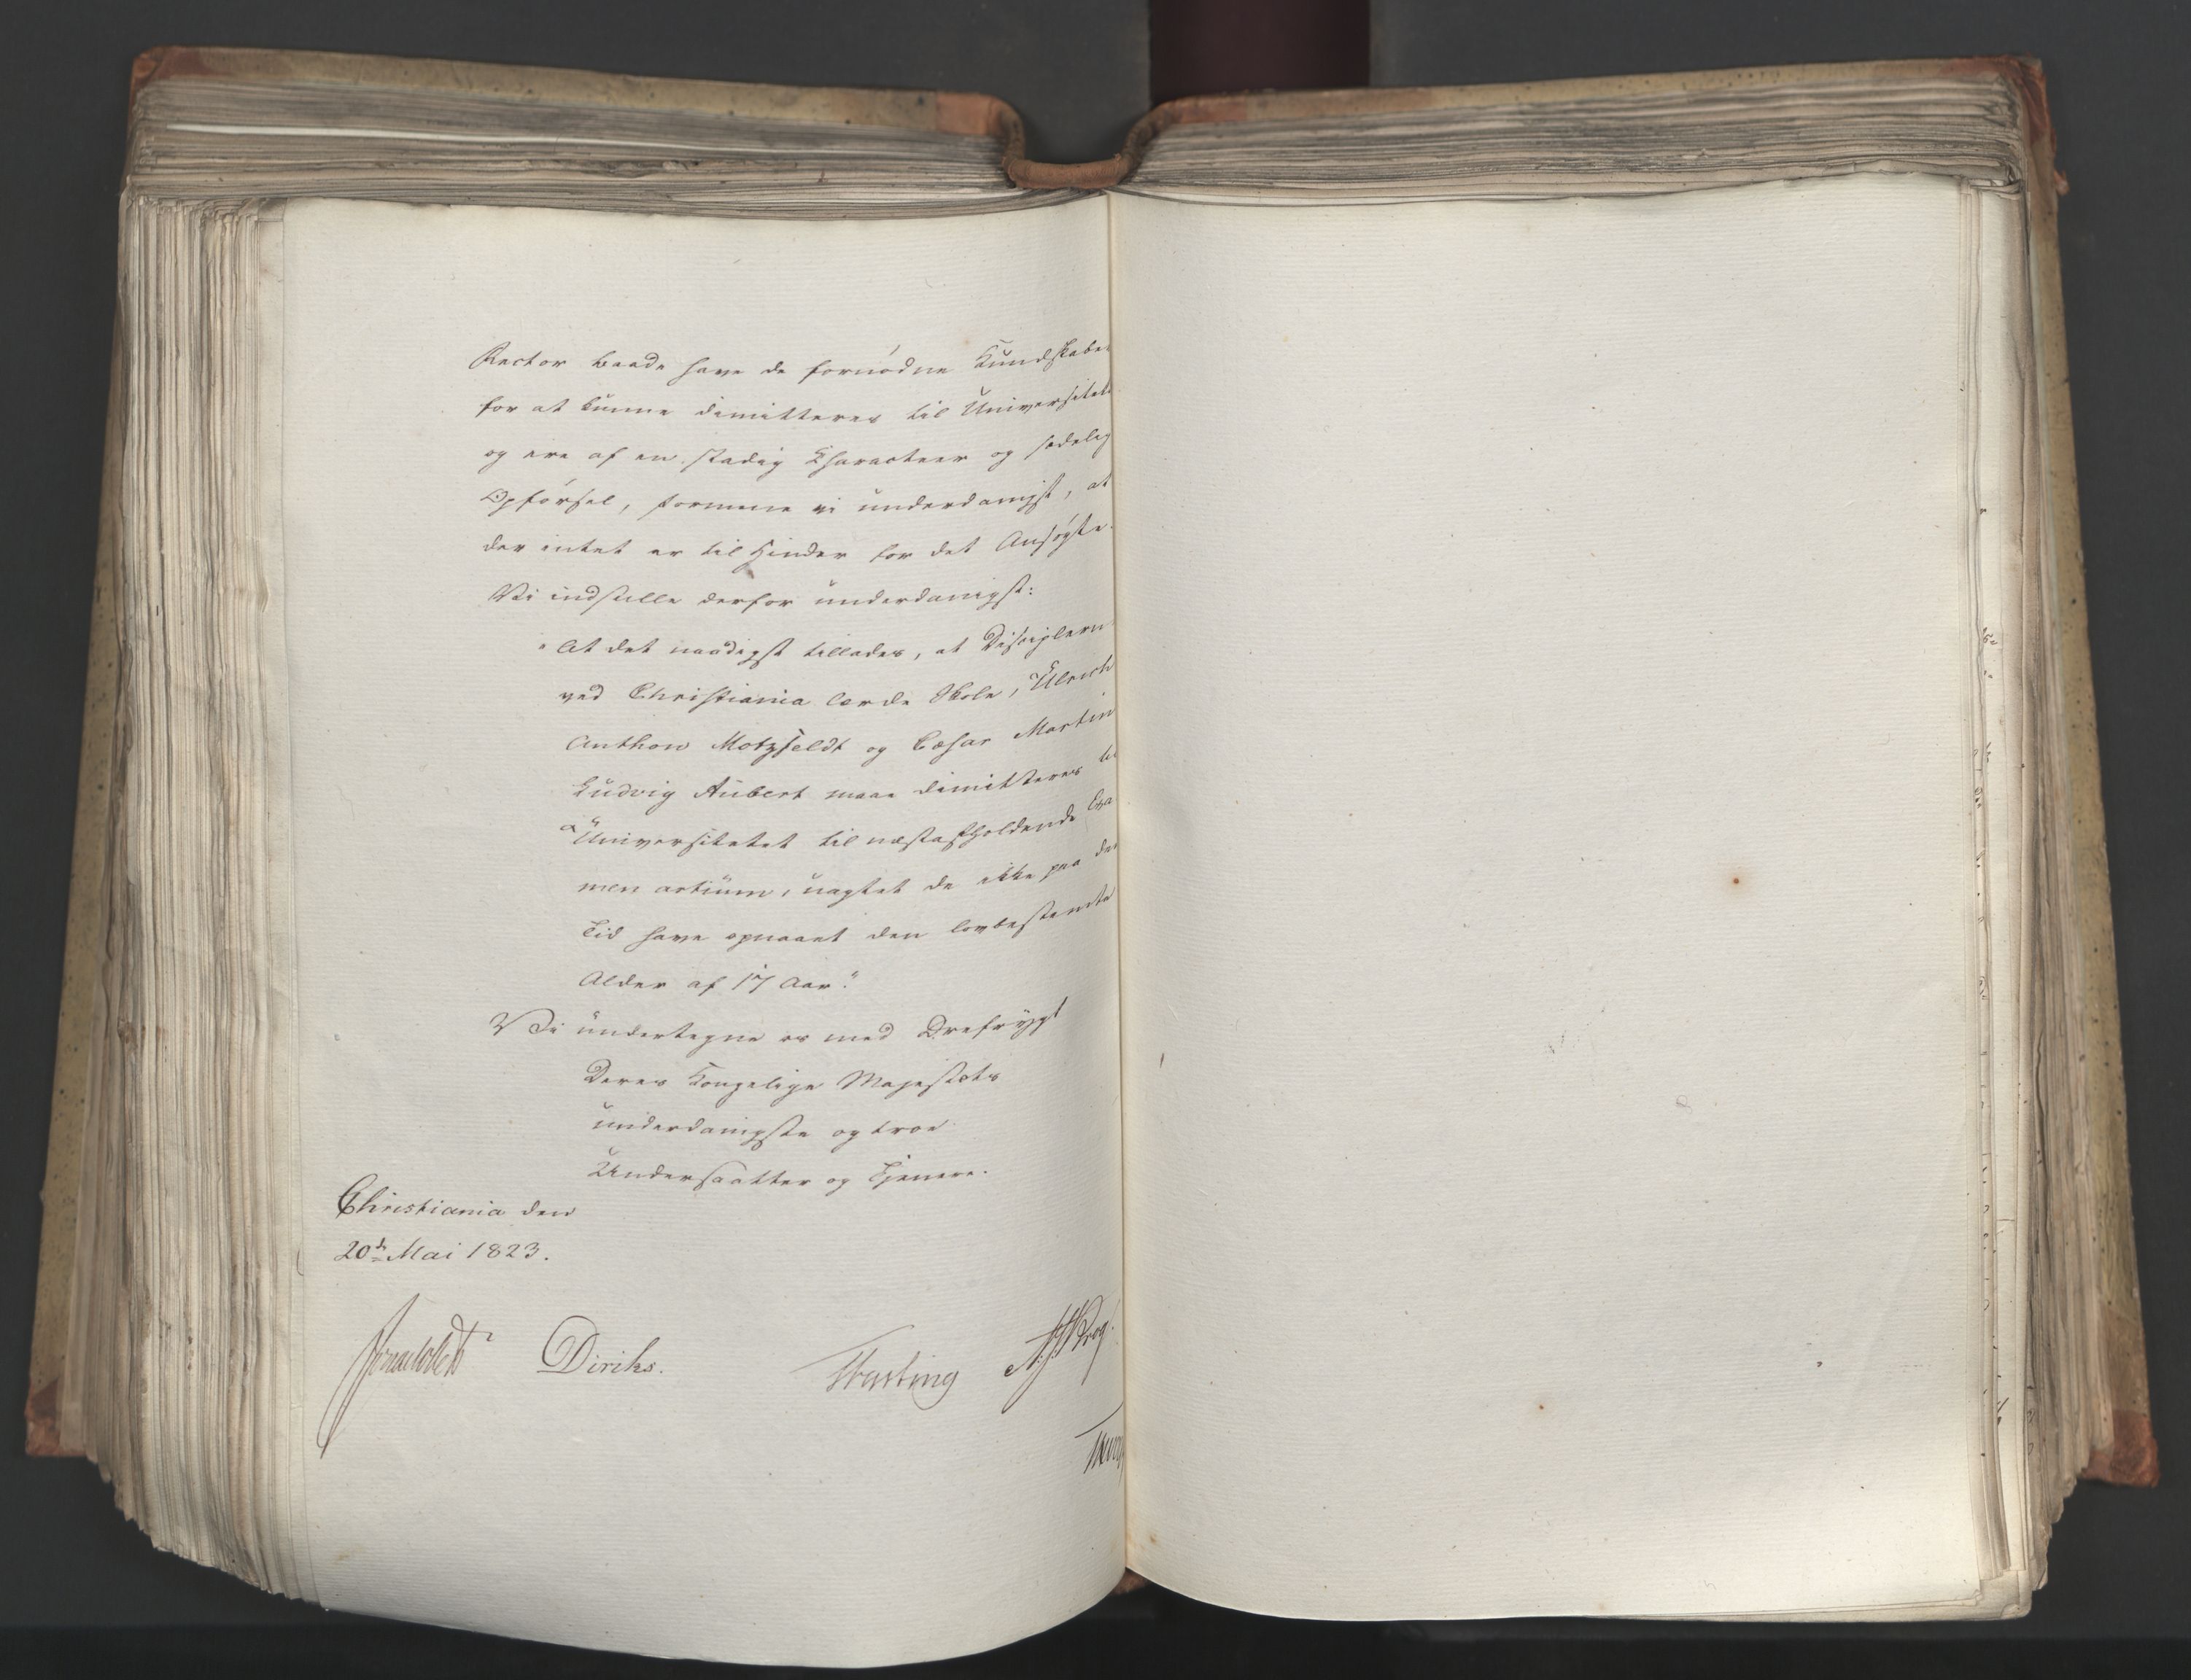 Rector baade have de fornødne Kundskaber
for at kunne dimitteres til Universitet
og ere af en stadig Characteer og sædelig
Opførsel, formene vi underdanigst, at
der intet er til Hinder for det Ansøgte.
Vi indstille derfor underdanigst:
"At det naadigst tillades, at Disciplern
ved Christiania lærde Skole, Ulrich
Anthon Motzfeldt og Cæsar Martin
Ludvig Aubert maae dimitteres til
Universitetet til næstafholdende Exa
men artium, uagtet de ikke paa den
Tid have opnaaet den lovbestemte
Alder af 17 Aar."
Vi undertegne os med Ærefrygt
Deres Kongelige Majestæts
underdanigste og troe
Undersaatter og Tjenere.
Christiania den
20de Mai 1823.
Diriks. Fasting